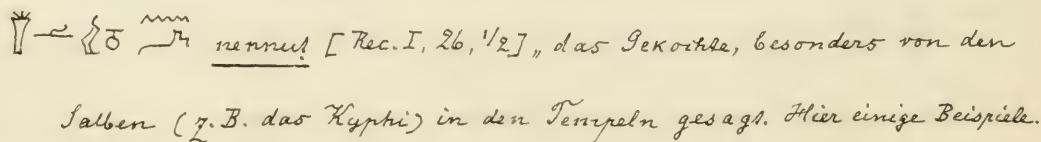 nennut [Rec. I, 26, 1/2] „das Gekochte, besonders von den
Salben (z. B. das Kyphi) in den Tempeln gesagt. Hier einige Beispiele.